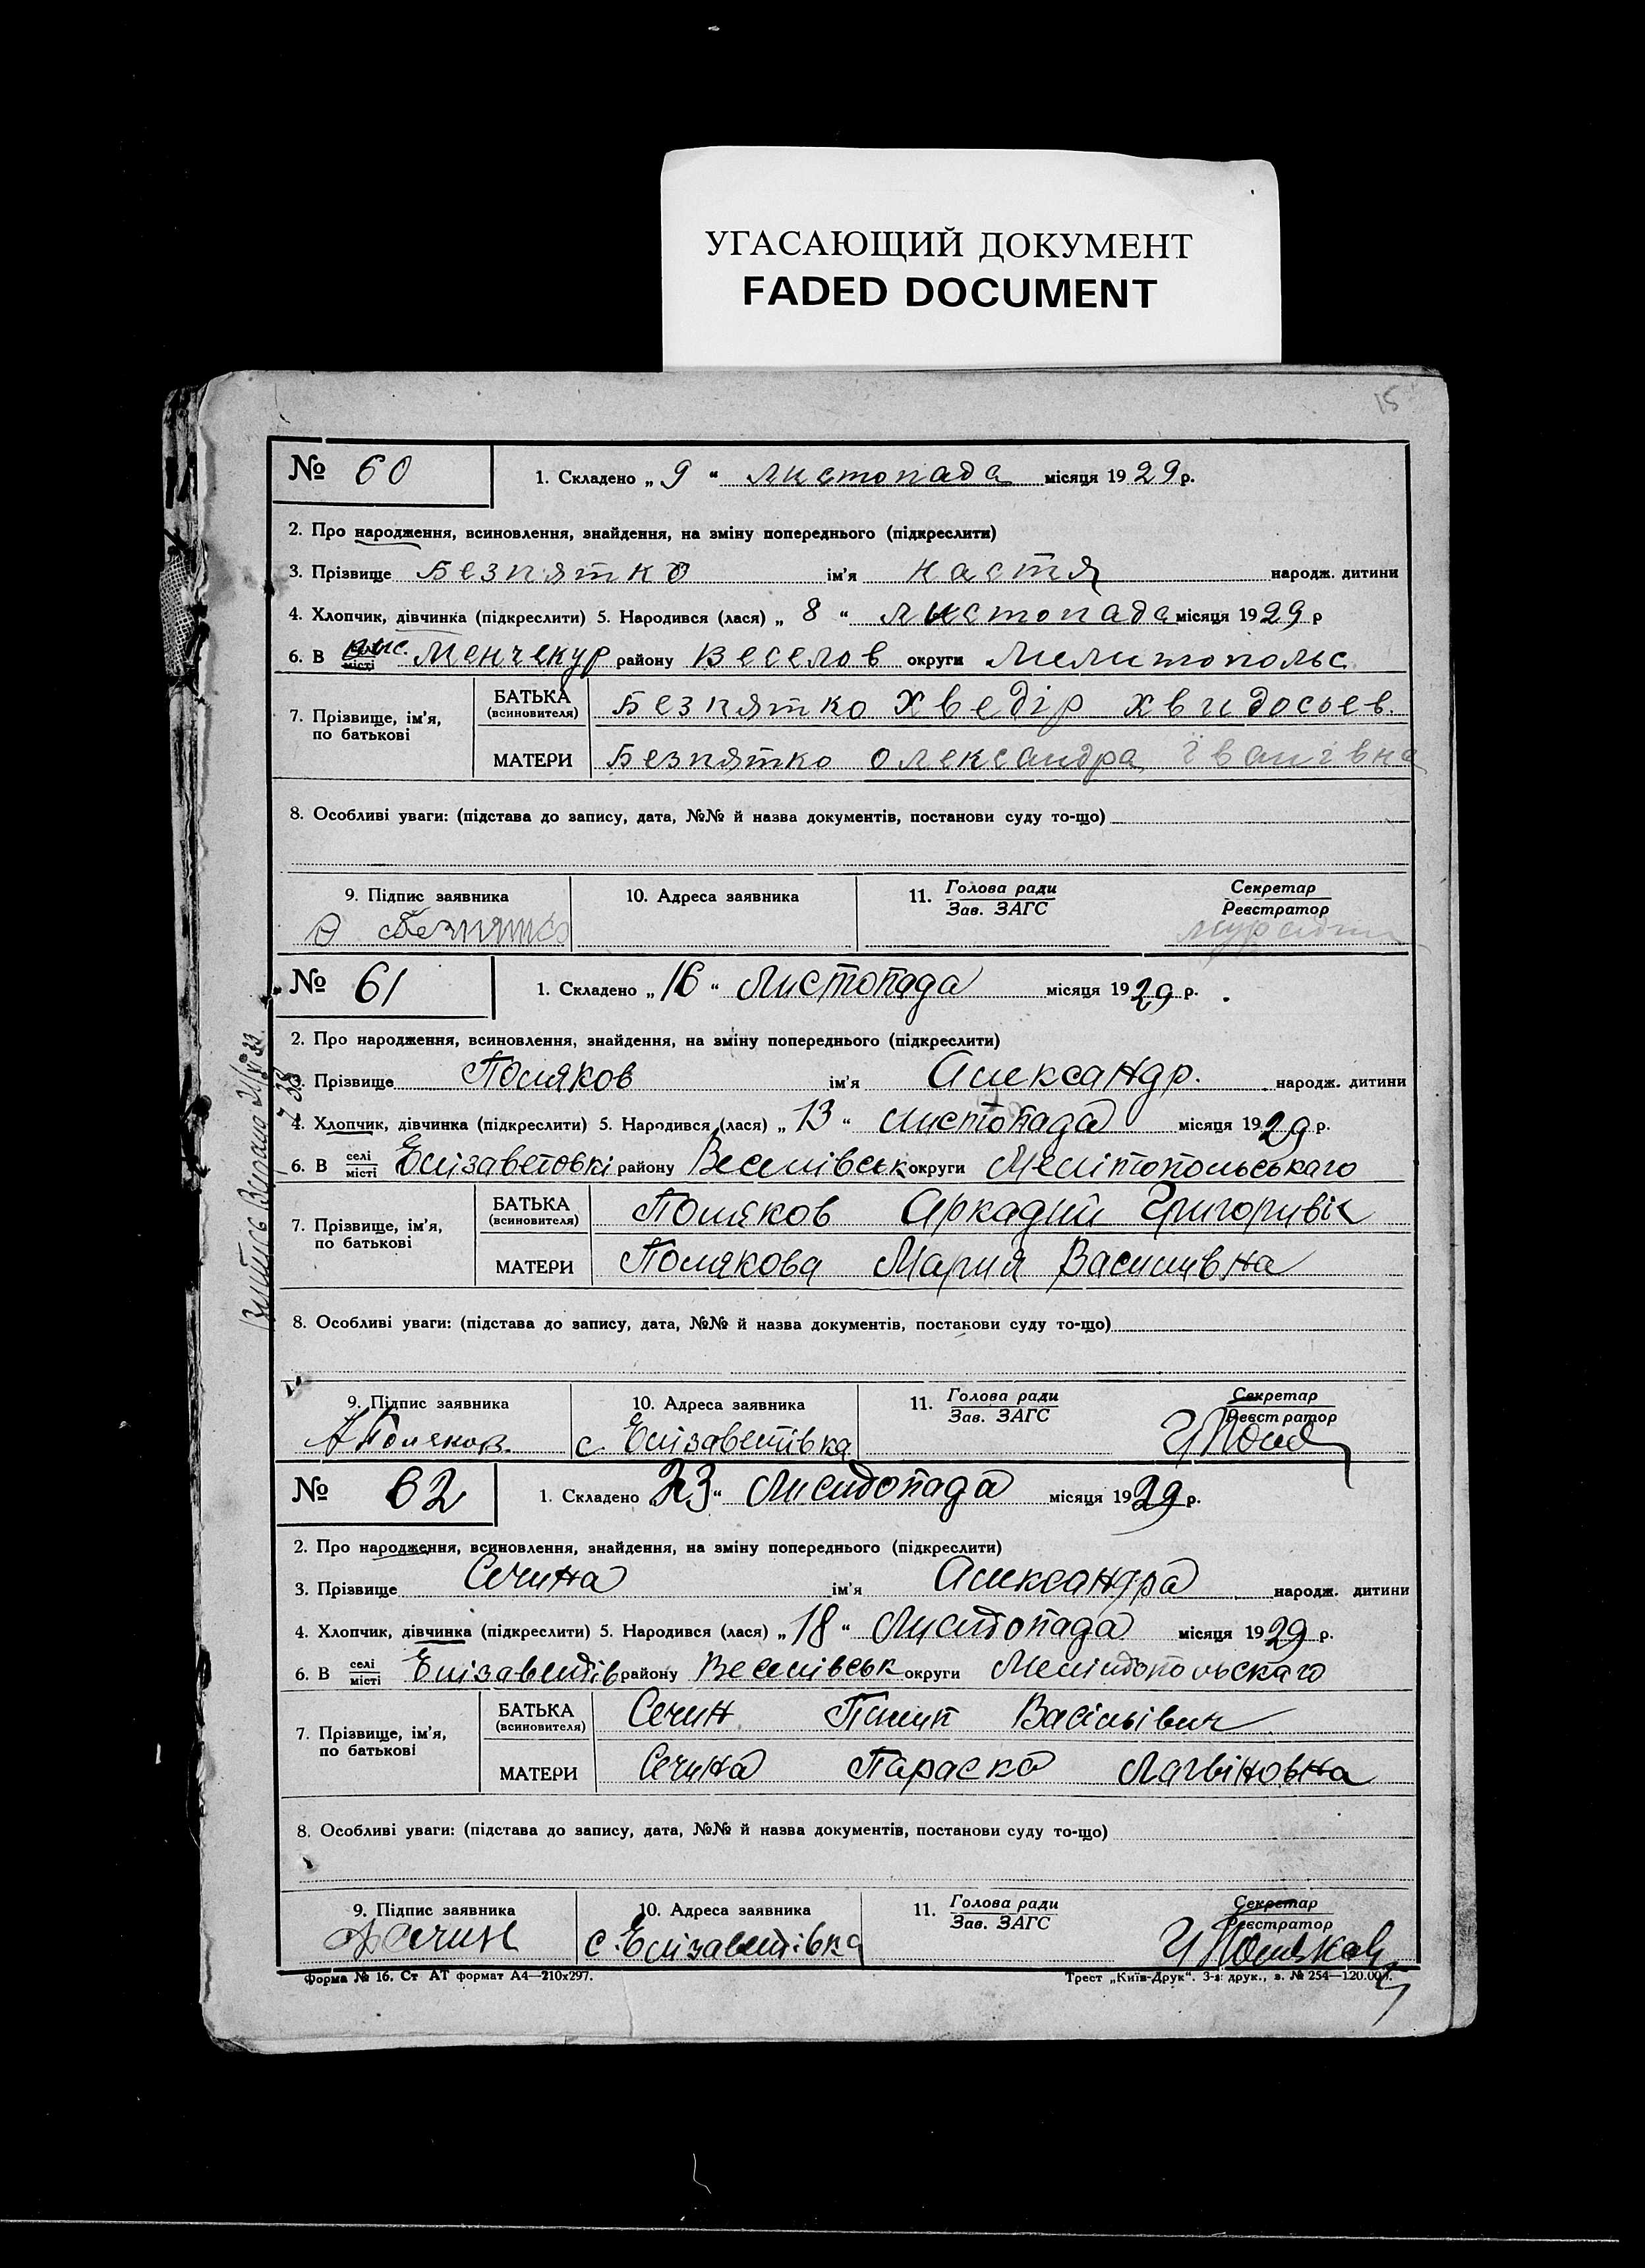 УГАСАЮЩИЙ ДОКУМЕНТ
FADED DOCUMENT
15
№ 60 1. Складено „ 9 “ листопада місяця 1929 р.
2. Про народження, всиновлення, знайдення, на зміну попереднього (підкреслити)
3. Прізвище Безпятко ім'я Настя народж. дитини
4. Хлопчик, дівчинка (підкреслити) 5. Народився (лася) „ 8 “ листопада місяця 1929 р
6. В місті Менчекур району Веселов округи Мелитопольс
7. Прізвище, ім'я, по батькові
БАТЬКА (всиновителя) Безпятко Хведір Хвидосьев.
МАТЕРИ Безпятко Олександра Іванівна
8. Особливі уваги: (підстава до запису, дата, №№ й назва документів, постанови суду то-що)
9. Підпис заявника 10. Адреса заявника 11. Голова ради Зав. ЗАГС Секретар Реєстратор
Безпятко
№ 61 1. Складено „ 16 “ Листопада місяця 1929 р.
2. Про народження, всиновлення, знайдення, на зміну попереднього (підкреслити)
3. Прізвище Поляков ім'я Александр. народж. дитини
4. Хлопчик, дівчинка (підкреслити) 5. Народився (лася) „ 13 “ листопада місяця 1929 р.
6. В селі місті Елізаветовкі району Веселівськ округи Мелітопольськаго
7. Прізвище, ім'я, по батькові
БАТЬКА (всиновителя) Поляков Аркадий Григоривіч
МАТЕРИ Полякова Мария Василивна
8. Особливі уваги: (підстава до запису, дата, №№ й назва документів, постанови суду то-що)
9. Підпис заявника 10. Адреса заявника 11. Голова ради Зав. ЗАГС Секретар Реєстратор
А Поляков. с. Елізаветівка
№ 62 1. Складено 23 “ Листопада місяця 1929 р.
2. Про народження, всиновлення, знайдення, на зміну попереднього (підкреслити)
3. Прізвище Сечина ім'я Александра народж. дитини
4. Хлопчик, дівчинка (підкреслити) 5. Народився (лася) „ 18 “ Листопада місяця 1929 р.
6. В селі місті Елізаветів району Веселівськ округи Мелітопольскаго
7. Прізвище, ім'я, по батькові
БАТЬКА (всиновителя) Сечин Пилип Васільівич
МАТЕРИ Сечина Параска Лагвіновна
8. Особливі уваги: (підстава до запису, дата, №№ й назва документів, постанови суду то-що)
9. Підпис заявника 10. Адреса заявника 11. Голова ради Зав. ЗАГС Секретар Реєстратор
Сечин с. Елізаветівка
Форма № 16. Ст АТ формат А4—210х297. Трест „Київ-Друк“. 3-я друк., з. № 254—120.000.